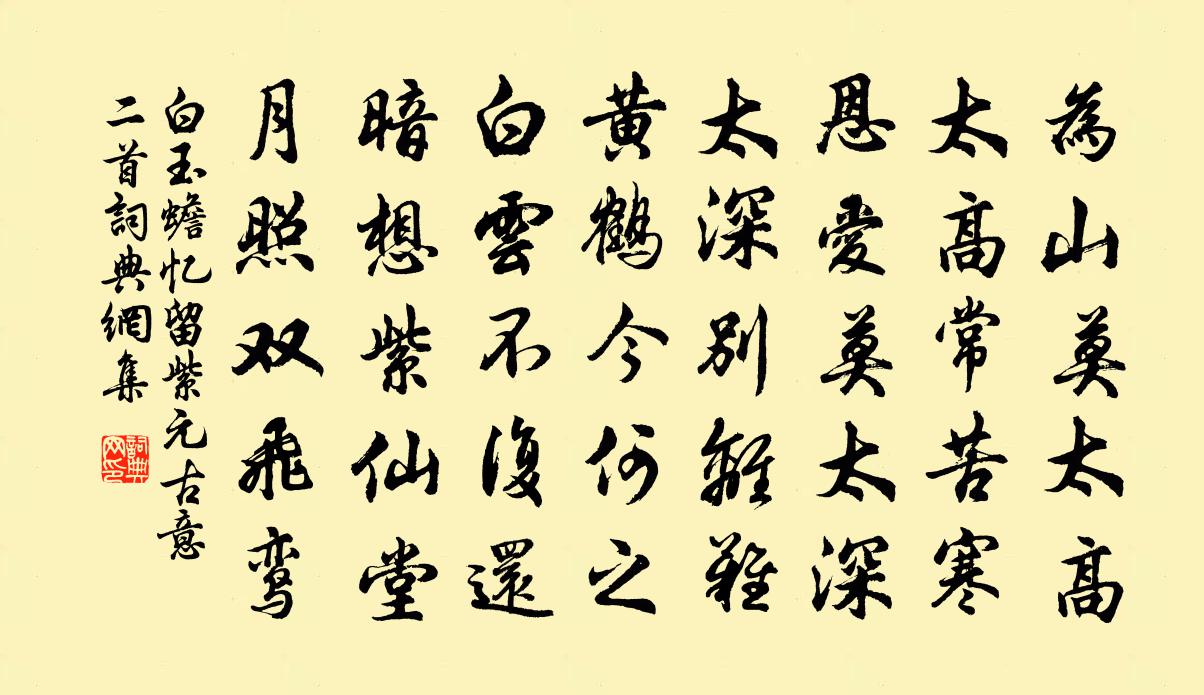 為山莫太高
太高常苦寒
恩愛莫太深
太深別離難
黃鶴今何之
白雲不復還
暗想紫仙堂
月照双飛鸾
白玉蟾忆留紫元古意
二首詞典網集
詞典网印